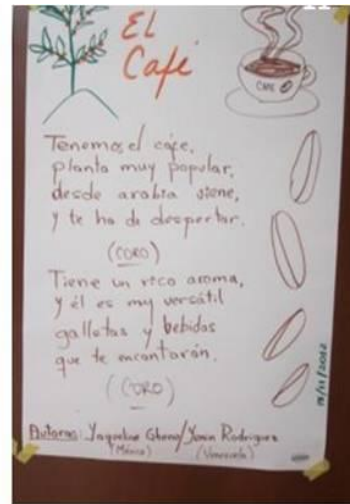 El
Café
CAFE
Tenemos el café,
planta muy popular,
desde arabia viene,
y te ha de despertar.
(CORO)
Tiene un rico aroma,
y él es muy versátil
galletas y bebidas
que te encantarán.
(CORO)
Autoras: Yaqueline /Yenin Rodríguez
(México) (Venezuela)
/11/2012